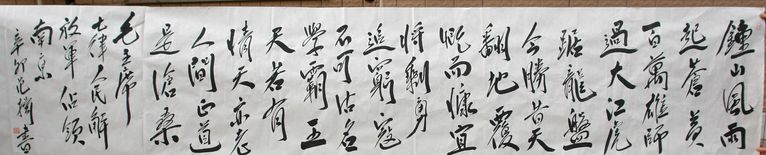 鍾山風雨
起蒼黃
百萬雄師
過大江虎
踞龍盤
今勝昔天
翻地覆
慨而慷宜
將剩勇
追窮寇
不可沽名
學霸王
天若有
情天亦老
人間正道
是滄桑
毛主席
七律人民解
放軍佔領
南京
辛卯書